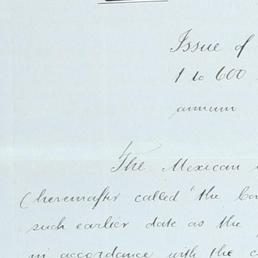 Issue of
1 to 600
annum
The Mexican
(hereinafter called "the
such earlier date as the
in accordance with the